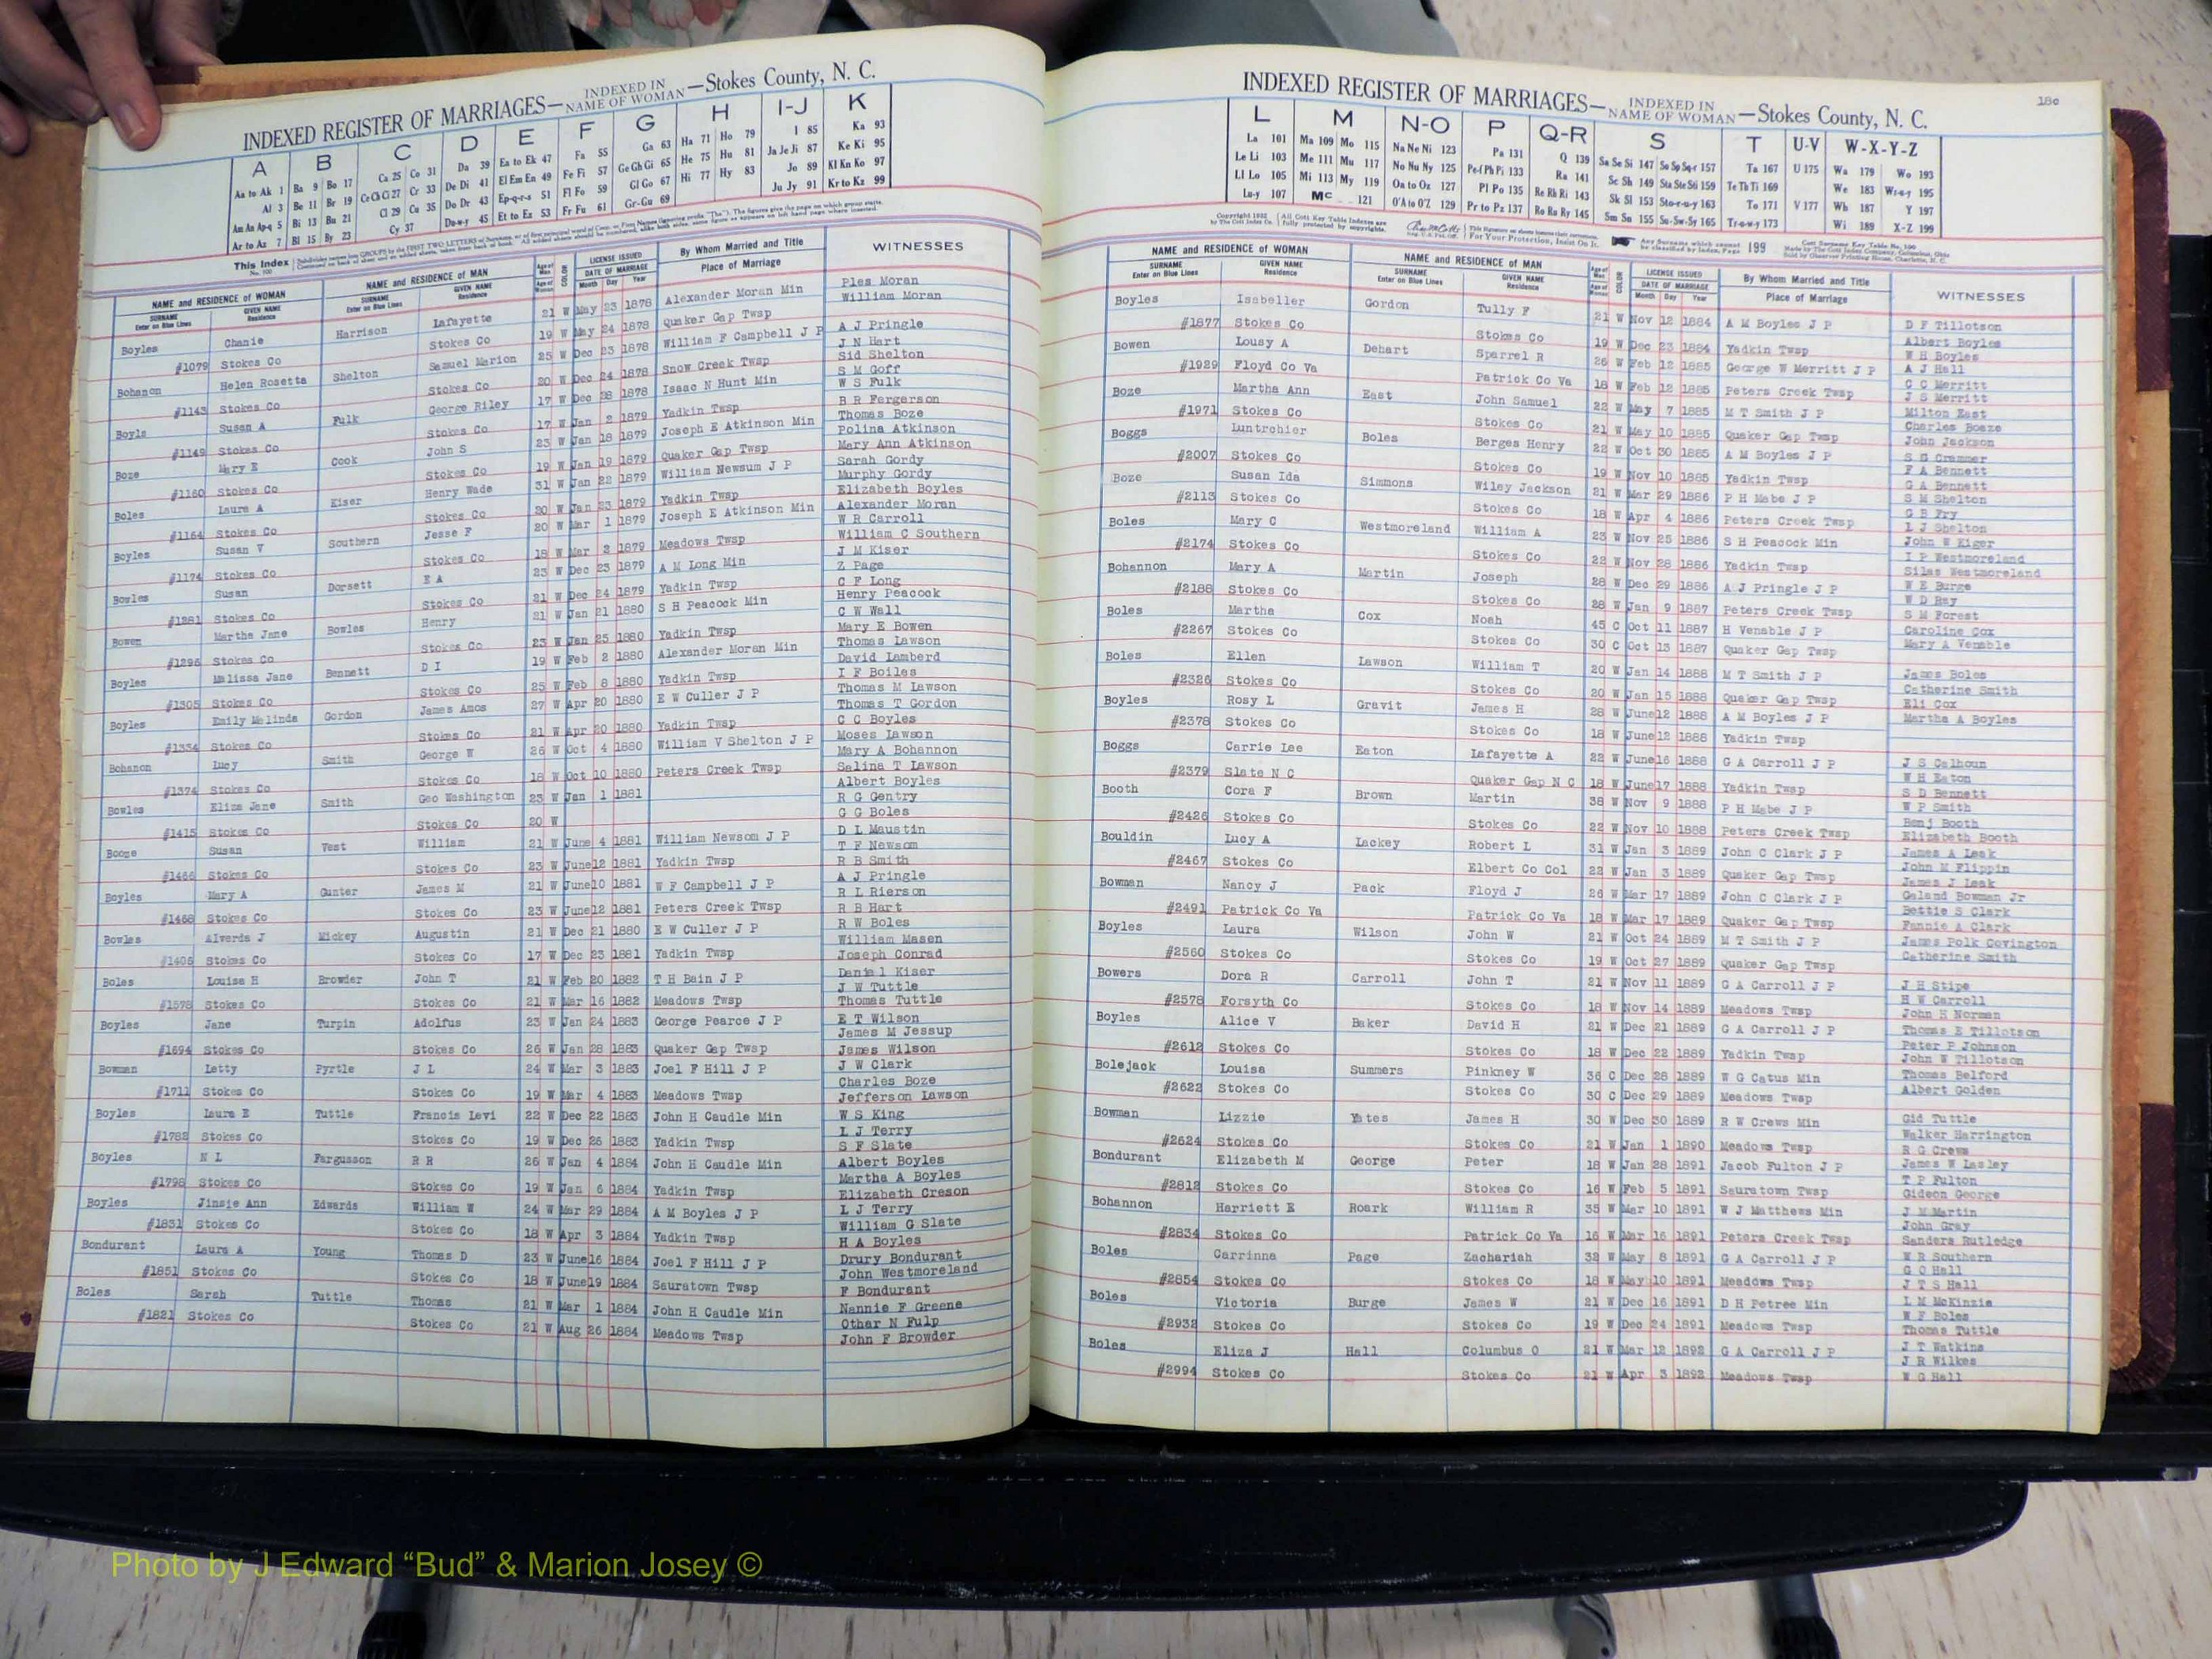 INDEXED REGISTER OF MARRIAGES— INDEXED IN NAME OF WOMAN —Stokes County, N. C.
A B C D E F G H I-J K
Aa to Ak 1 Ba 9 Bo 17 Ca 25 Co 31 Da 39 Ea to Ek 47 Fa 55 Ga 63 Ha 71 Ho 79 I 85 Ka 93
Al 3 Be 11 Br 19 Ce Ch Ci 27 Cr 33 De Di 41 El Em En 49 Fe Fi 57 Ge Gh Gi 65 He 75 Hu 81 Ja Je Ji 87 Ke Ki 95
Am An Ap-q 5 Bi 13 Bu 21 Cl 29 Cu 35 Do Dr 43 Ep-q-r-s 51 Fl Fo 59 Gl Go 67 Hi 77 Hy 83 Jo 89 Kl Kn Ko 97
Ar to Az 7 Bl 15 By 23 Cy 37 Du-w-y 45 Et to Ez 53 Fr Fu 61 Gr-Gu 69 Ju Jy 91 Kr to Kz 99
NAME and RESIDENCE OF WOMAN NAME and RESIDENCE OF MAN COLOR LICENSE ISSUED By Whom Married and Title WITNESSES
SURNAME Enter on Blue Lines GIVEN NAME Residence SURNAME Enter on Blue Lines GIVEN NAME Residence DATE OF MARRIAGE Month Day Year Place of Marriage
Boyles Chanie Harrison Lafayette 21 W May 23 1878 Alexander Moran Min Ples Moran
William Moran
#1079 Stokes Co Stokes Co 19 W May 24 1878 Quaker Gap Twsp
Bohanon Helen Rosetta Shelton Samuel Marion 25 W Dec 23 1878 William F Campbell J P A J Pringle
J N Hart
#1143 Stokes Co Stokes Co 20 W Dec 24 1878 Snow Creek Twsp Sid Shelton
Boyls Susan A Fulk George Riley 17 W Dec 28 1878 Isaac N Hunt Min S M Goff
W S Fulk
#1149 Stokes Co Stokes Co 17 W Jan 2 1879 Yadkin Twsp B R Fergerson
Boze Mary E Cook John S 23 W Jan 18 1879 Joseph E Atkinson Min Thomas Boze
Polina Atkinson
#1160 Stokes Co Stokes Co 19 W Jan 19 1879 Quaker Gap Twsp Mary Ann Atkinson
Boles Laura A Kiser Henry Wade 31 W Jan 22 1879 William Newsum J P Sarah Gordy
Murphy Gordy
#1164 Stokes Co Stokes Co 20 W Jan 23 1879 Yadkin Twsp Elizabeth Boyles
Boyles Susan V Southern Jesse F 20 W Mar 1 1879 Joseph E Atkinson Min Alexander Moran
W R Carroll
#1174 Stokes Co Stokes Co 18 W Mar 2 1879 Meadows Twsp William C Southern
Bowles Susan Dorsett E A 23 W Dec 23 1879 A M Long Min J M Kiser
Z Page
#1281 Stokes Co Stokes Co 21 W Dec 24 1879 Yadkin Twsp C F Long
Bowen Martha Jane Bowles Henry 21 W Jan 21 1880 S H Peacock Min Henry Peacock
C W Wall
#1296 Stokes Co Stokes Co 23 W Jan 25 1880 Yadkin Twsp Mary E Bowen
Boyles Malissa Jane Bennett D I 19 W Feb 2 1880 Alexander Moran Min Thomas Lawson
David Lamberd
#1305 Stokes Co Stokes Co 25 W Feb 8 1880 Yadkin Twsp I F Boiles
Boyles Emily Melinda Gordon James Amos 27 W Apr 20 1880 E W Culler J P Thomas M Lawson
Thomas T Gordon
#1334 Stokes Co Stokes Co 21 W Apr 20 1880 Yadkin Twsp C C Boyles
Bohanon Lucy Smith George W 26 W Oct 4 1880 William V Shelton J P Moses Lawson
Mary A Bohannon
#1374 Stokes Co Stokes Co 18 W Oct 10 1880 Peters Creek Twsp Salina T Lawson
Bowles Eliza Jane Smith Geo Washington 23 W Jan 1 1881 Albert Boyles
R G Gentry
#1415 Stokes Co Stokes Co 20 W G G Boles
Booze Susan Vest William 21 W June 4 1881 William Newsom J P D L Maustin
T F Newsom
#1466 Stokes Co Stokes Co 23 W June12 1881 Yadkin Twsp R B Smith
Boyles Mary A Gunter James M 21 W June10 1881 W F Campbell J P A J Pringle
R L Rierson
#1468 Stokes Co Stokes Co 23 W June12 1881 Peters Creek Twsp R B Hart
Bowles Alverda J Mickey Augustin 21 W Dec 21 1880 E W Culler J P R W Boles
William Masen
#1406 Stokes Co Stokes Co 17 W Dec 23 1881 Yadkin Twsp Joseph Conrad
Boles Louisa H Browder John T 21 W Feb 20 1882 T H Bain J P Daniel Kiser
J W Tuttle
#1578 Stokes Co Stokes Co 21 W Mar 16 1882 Meadows Twsp Thomas Tuttle
Boyles Jane Turpin Adolfus 23 W Jan 24 1883 George Pearce J P E T Wilson
James M Jessup
#1694 Stokes Co Stokes Co 26 W Jan 28 1883 Quaker Gap Twsp James Wilson
Bowman Letty Pyrtle J L 24 W Mar 3 1883 Joel F Hill J P J W Clark
Charles Boze
#1711 Stokes Co Stokes Co 19 W Mar 4 1883 Meadows Twsp Jefferson Lawson
Boyles Laura E Tuttle Francis Levi 22 W Dec 22 1883 John H Caudle Min W S King
L J Terry
#1782 Stokes Co Stokes Co 19 W Dec 26 1883 Yadkin Twsp S F Slate
Boyles N L Fargusson R R 26 W Jan 4 1884 John H Caudle Min Albert Boyles
Martha A Boyles
#1798 Stokes Co Stokes Co 19 W Jan 6 1884 Yadkin Twsp Elizabeth Creson
Boyles Jinsie Ann Edwards William W 24 W Mar 29 1884 A M Boyles J P L J Terry
William G Slate
#1831 Stokes Co Stokes Co 18 W Apr 3 1884 Yadkin Twsp H A Boyles
Bondurant Laura A Young Thomas D 23 W June16 1884 Joel F Hill J P Drury Bondurant
John Westmoreland
#1851 Stokes Co Stokes Co 18 W June19 1884 Sauratown Twsp F Bondurant
Boles Sarah Tuttle Thomas 21 W Mar 1 1884 John H Caudle Min Nannie F Greene
Othar N Fulp
#1821 Stokes Co Stokes Co 21 W Aug 26 1884 Meadows Twsp John F Browder
18c
INDEXED REGISTER OF MARRIAGES— INDEXED IN NAME OF WOMAN —Stokes County, N. C.
L M N-O P Q-R S T U-V W-X-Y-Z
La 101 Ma 109 Mo 115 Na Ne Ni 123 Pa 131 Q 139 Sa Se Si 147 So Sp Sq-r 157 Ta 167 U 175 Wa 179 Wo 193
Le Li 103 Me 111 Mu 117 No Nu Ny 125 Pe-f Ph Pi 133 Ra 141 Sc Sh 149 Sta Ste Sti 159 Te Th Ti 169 We 183 Wr-u-y 195
Ll Lo 105 Mi 113 My 119 Oa to Oz 127 Pl Po 135 Re Rh Ri 143 Sk Sl 153 Sto-r-u-y 163 To 171 V 177 Wh 187 Y 197
Lu-y 107 Mc 121 O'A to O'Z 129 Pr to Pz 137 Ro Ru Ry 145 Sm Sn 155 Su-Sw-Sy 165 Tr-u-w-y 173 Wi 189 X-Z 199
NAME and RESIDENCE OF WOMAN NAME and RESIDENCE OF MAN COLOR LICENSE ISSUED By Whom Married and Title WITNESSES
SURNAME Enter on Blue Lines GIVEN NAME Residence SURNAME Enter on Blue Lines GIVEN NAME Residence DATE OF MARRIAGE Month Day Year Place of Marriage
Boyles Isabeller Gordon Tully F 21 W Nov 12 1884 A M Boyles J P D F Tillotson
Albert Boyles
#1877 Stokes Co Stokes Co 19 W Dec 23 1884 Yadkin Twsp W H Boyles
Bowen Lousy A Dehart Sparrel R 26 W Feb 12 1885 George W Merritt J P A J Hall
C C Merritt
#1929 Floyd Co Va Patrick Co Va 18 W Feb 12 1885 Peters Creek Twsp J S Merritt
Boze Martha Ann East John Samuel 22 W May 7 1885 M T Smith J P Milton East
Charles Booze
#1971 Stokes Co Stokes Co 21 W May 10 1885 Quaker Gap Twsp John Jackson
Boggs Luntrohier Boles Berges Henry 22 W Oct 30 1885 A M Boyles J P S G Crammer
F A Bennett
#2007 Stokes Co Stokes Co 19 W Nov 10 1885 Yadkin Twsp G A Bennett
Boze Susan Ida Simmons Wiley Jackson 21 W Mar 29 1886 P H Mabe J P S M Shelton
G B Fry
#2113 Stokes Co Stokes Co 18 W Apr 4 1886 Peters Creek Twsp L J Shelton
Boles Mary C Westmoreland William A 23 W Nov 25 1886 S H Peacock Min John W Kiger
I P Westmoreland
#2174 Stokes Co Stokes Co 22 W Nov 28 1886 Yadkin Twsp Silas Westmoreland
Bohannon Mary A Martin Joseph 28 W Dec 29 1886 A J Pringle J P W E Burge
W D Ray
#2188 Stokes Co Stokes Co 28 W Jan 9 1887 Peters Creek Twsp S M Forest
Boles Martha Cox Noah 45 C Oct 11 1887 H Venable J P Caroline Cox
Mary A Venable
#2267 Stokes Co Stokes Co 30 C Oct 13 1887 Quaker Gap Twsp
Boles Ellen Lawson William T 20 W Jan 14 1888 M T Smith J P James Boles
Catherine Smith
#2326 Stokes Co Stokes Co 20 W Jan 15 1888 Quaker Gap Twsp Eli Cox
Boyles Rosy L Gravit James H 28 W June12 1888 A M Boyles J P Martha A Boyles
#2378 Stokes Co Stokes Co 18 W June12 1888 Yadkin Twsp
Boggs Carrie Lee Eaton Lafayette A 22 W June16 1888 G A Carroll J P J S Calhoun
W H Eaton
#2379 Slate N C Quaker Gap N C 18 W June17 1888 Yadkin Twsp S D Bennett
Booth Cora F Brown Martin 38 W Nov 9 1888 P H Mabe J P W P Smith
Benj Booth
#2426 Stokes Co Stokes Co 22 W Nov 10 1888 Peters Creek Twsp Elizabeth Booth
Bouldin Lucy A Lackey Robert L 31 W Jan 3 1889 John C Clark J P James A Leak
John M Flippin
#2467 Stokes Co Elbert Co Col 22 W Jan 3 1889 Quaker Gap Twsp James J Leak
Bowman Nancy J Pack Floyd J 26 W Mar 17 1889 John C Clark J P Geland Bowman Jr
Bettie S Clark
#2491 Patrick Co Va Patrick Co Va 18 W Mar 17 1889 Quaker Gap Twsp Fannie A Clark
Boyles Laura Wilson John W 21 W Oct 24 1889 M T Smith J P James Polk Covington
Catherine Smith
#2560 Stokes Co Stokes Co 19 W Oct 27 1889 Quaker Gap Twsp
Bowers Dora R Carroll John T 21 W Nov 11 1889 G A Carroll J P J H Stipe
H W Carroll
#2578 Forsyth Co Stokes Co 18 W Nov 14 1889 Meadows Twsp John H Norman
Boyles Alice V Baker David H 21 W Dec 21 1889 G A Carroll J P Thomas E Tillotson
Peter P Johnson
#2612 Stokes Co Stokes Co 18 W Dec 22 1889 Yadkin Twsp John W Tillotson
Bolejack Louisa Summers Pinkney W 36 C Dec 28 1889 W G Catus Min Thomas Belford
Albert Golden
#2622 Stokes Co Stokes Co 30 C Dec 29 1889 Meadows Twsp
Bowman Lizzie Yates James H 30 W Dec 30 1889 R W Crews Min Gid Tuttle
Walker Harrington
#2624 Stokes Co Stokes Co 21 W Jan 1 1890 Meadows Twsp R G Crews
Bondurant Elizabeth M George Peter 18 W Jan 28 1891 Jacob Fulton J P James W Lasley
T P Fulton
#2812 Stokes Co Stokes Co 16 W Feb 5 1891 Sauratown Twsp Gideon George
Bohannon Harriett E Roark William R 35 W Mar 10 1891 W J Matthews Min J M Martin
John Gray
#2834 Stokes Co Patrick Co Va 16 W Mar 16 1891 Peters Creek Twsp Sanders Rutledge
Boles Carrinna Page Zachariah 32 W May 8 1891 G A Carroll J P W R Southern
G O Hall
#2854 Stokes Co Stokes Co 18 W May 10 1891 Meadows Twsp J T S Hall
Boles Victoria Burge James W 21 W Dec 16 1891 D H Petree Min L M McKinzie
W F Boles
#2932 Stokes Co Stokes Co 19 W Dec 24 1891 Meadows Twsp Thomas Tuttle
Boles Eliza J Hall Columbus O 21 W Mar 12 1892 G A Carroll J P J T Watkins
J R Wilkes
#2994 Stokes Co Stokes Co 21 W Apr 3 1892 Meadows Twsp W G Hall
Photo by J Edward “Bud” & Marion Josey ©